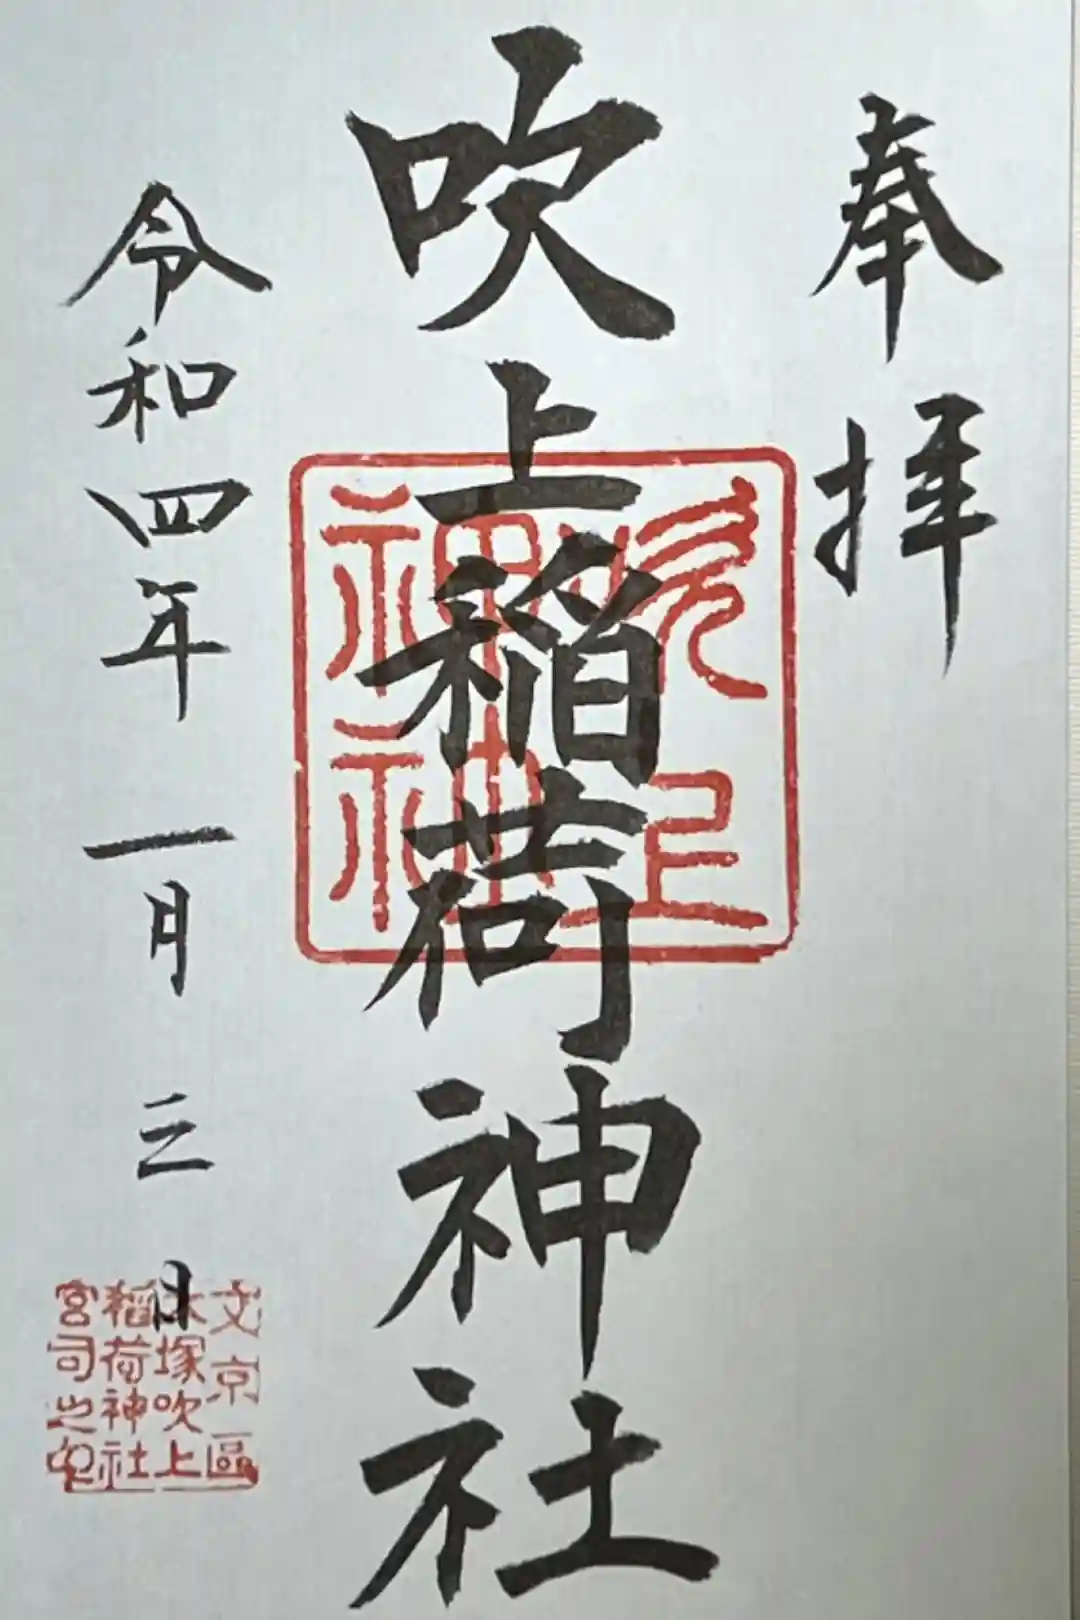 奉拝
吹上稲荷神社
吹上
神社
令和四年 一月三日
文京區
大塚吹上
稲荷神社
宮司之印